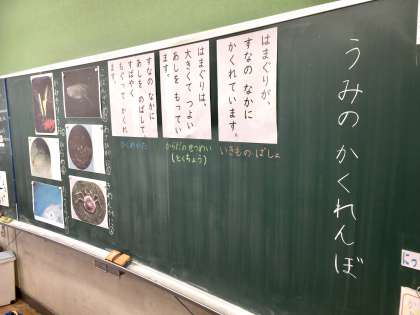 うみの かくれんぼ
はまぐりが、
すなの なかに
かくれています。
いきもの ばしょ
はまぐりは、
大きくて つよい
あしを もってい
ます。
からだのせつめい
(とくちょう)
すなの なかに
あしを のばして、
すばやく
もぐって かくれ
ます。
かくれかた